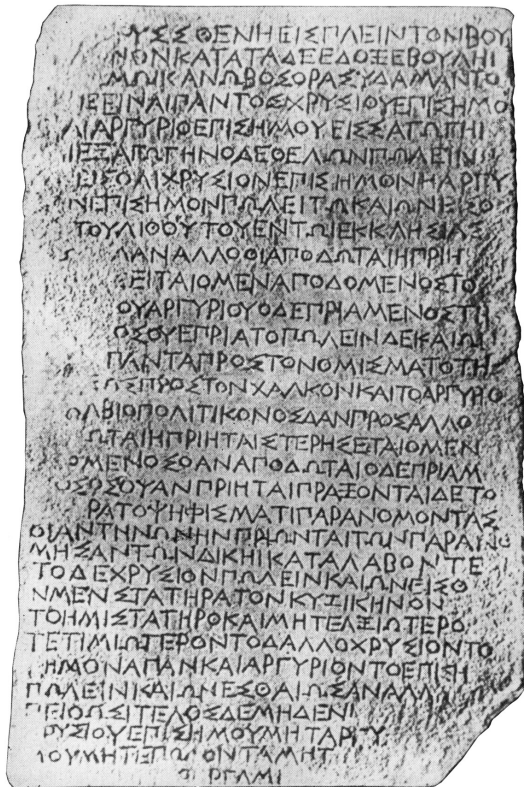 ΥΣΣΘΕΝΗΕΙΣΠΛΕΙΝΤΟΝΒΟΥ
ΝΟΝΚΑΤΑΤΑΔΕΕΔΟΞΕΒΟΥΛΗΙ
ΜΩΙΚΑΝΩΒΟΣΘΡΑΣΥΔΑΜΑΝΤΟ
ΠΕΕΙΝΑΙΠΑΝΤΟΣΧΡΥΣΙΟΥΕΠΙΣΗΜΟ
ΑΙΑΡΓΥΡΙΟΕΠΙΣΗΜΟΥΕΙΣΣΑΓΩΓΗΙ
ΙΕΞΑΓΩΓΗΝΟΔΕΘΕΛΩΝΠΩΛΕΙΝ
ΕΙΣΘΑΙΧΡΥΣΙΟΝΕΠΙΣΗΜΟΝΗΑΡΓΥ
ΝΕΠΙΣΗΜΟΝΠΩΛΕΙΤΩΚΑΙΩΝΕΙΣΘ
ΤΟΥΛΙΘΟΥΤΟΥΕΝΤΩΙΕΚΚΛΗΣΙΑΣ
ΑΝΑΛΛΟΘΙΑΠΟΔΩΤΑΙΗΠΡΙΗ
ΞΕΙΤΑΙΟΜΕΝΑΠΟΔΟΜΕΝΟΣΤΟ
ΟΥΑΡΓΥΡΙΟΥΟΔΕΠΡΙΑΜΕΝΟΣΤΗ
ΟΣΟΥΕΠΡΙΑΤΟΠΩΛΕΙΝΔΕΚΑΙΩ
ΠΑΝΤΑΠΡΟΣΤΟΝΟΜΙΣΜΑΤΟΤΗ
ΩΣΠΡΟΣΤΟΝΧΑΛΚΟΝΚΑΙΤΟΑΡΓΥΡΟ
ΟΛΒΙΟΠΟΛΙΤΙΚΟΝΟΣΔΑΝΠΡΟΣΑΛΛΟ
ΩΤΑΙΗΠΡΙΗΤΑΙΣΤΕΡΗΣΕΤΑΙΟΜΕΝ
ΟΜΕΝΟΣΟΑΝΑΠΟΔΩΤΑΙΟΔΕΠΡΙΑΜ
ΟΣΟΣΟΥΑΝΠΡΙΗΤΑΙΠΡΑΞΟΝΤΑΙΔΕΤΟ
ΡΑΤΟΨΗΦΙΣΜΑΤΙΠΑΡΑΝΟΜΟΝΤΑΣ
ΟΙΑΝΤΗΝΩΝΗΝΠΡΙΩΝΤΑΙΤΩΝΠΑΡΑΝΟ
ΜΗΣΑΝΤΩΝΔΙΚΗΙΚΑΤΑΛΑΒΟΝΤΕ
ΤΟΔΕΧΡΥΣΙΟΝΠΩΛΕΙΝΚΑΙΩΝΕΙΣΘ
ΝΜΕΝΣΤΑΤΗΡΑΤΟΝΚΥΞΙΚΗΝΟΝ
ΤΟΗΜΙΣΤΑΤΗΡΟΚΑΙΜΗΤΕΑΞΙΩΤΕΡΟ
ΤΕΤΙΜΙΩΤΕΡΟΝΤΟΔΑΛΛΟΧΡΥΣΙΟΝΤΟ
ΗΜΟΝΑΠΑΝΚΑΙΑΡΓΥΡΙΟΝΤΟΕΠΙΣΗ
ΠΩΛΕΙΝΚΑΙΩΝΕΣΘΑΙΩΣΑΝΑΛΛ
ΠΕΙΘΩΣΙΤΕΛΟΣΔΕΜΗΔΕΝΙ
ΡΥΣΙΟΥΕΠΙΣΗΜΟΥΜΗΤΑΡΓΥ
ΙΟΥΜΗΤΕΠΩΛΟΝΤΑΜΗΤ